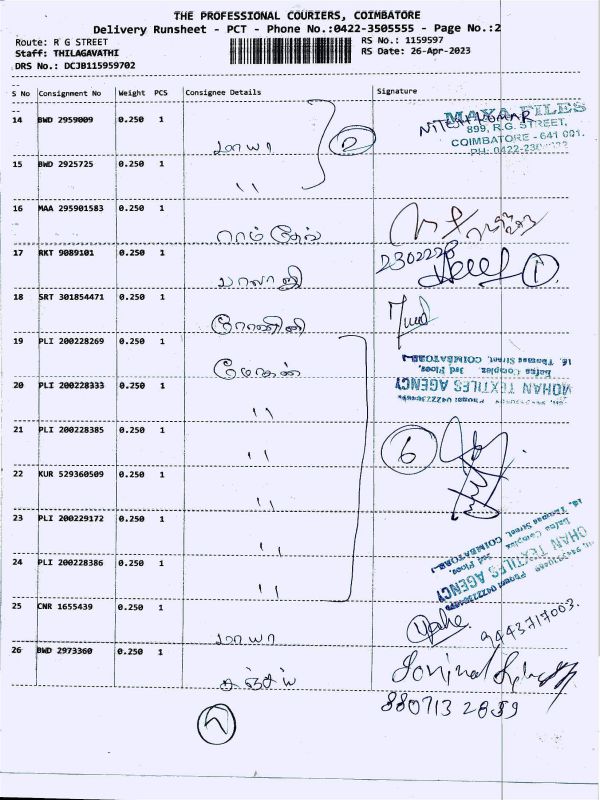 THE PROFESSIONAL COURIERS, COIMBATORE
Delivery Runsheet - PCT - Phone No.:0422-3505555 - Page No.:2
Route: R G STREET
RS No.: 1159597
Staff: THILAGAVATHI
RS Date: 26-Apr-2023
DRS No.: DCJB115959702
S No Consignment No Weight PCS Consignee Details Signature
14 BWD 2959009 0.250 1 மாயா 2 NITESH KUMAR
MAYA FILES
899, R.G. STREET,
COIMBATORE - 641 001.
15 BWD 2925725 0.250 1 "
16 MAA 295901583 0.250 1 ராம்தேவ்
17 RKT 9089101 0.250 1 பாலாஜி 2302228 1
18 SRT 301854471 0.250 1
19 PLI 200228269 0.250 1 மோகன்
MOHAN TEXTILES AGENCY
Lafza Complex, 3rd Floor,
16, Thomas Street, COIMBATORE-1
20 PLI 200228333 0.250 1 "
21 PLI 200228385 0.250 1 " 6
22 KUR 529360509 0.250 1 "
23 PLI 200229172 0.250 1 "
24 PLI 200228386 0.250 1 "
MOHAN TEXTILES AGENCY
Lafza Complex, 3rd Floor,
16, Thomas Street, COIMBATORE-1
25 CNR 1655439 0.250 1 மாயா 9443717003.
26 BWD 2973360 0.250 1 சஞ்சய்
880713 2859
7